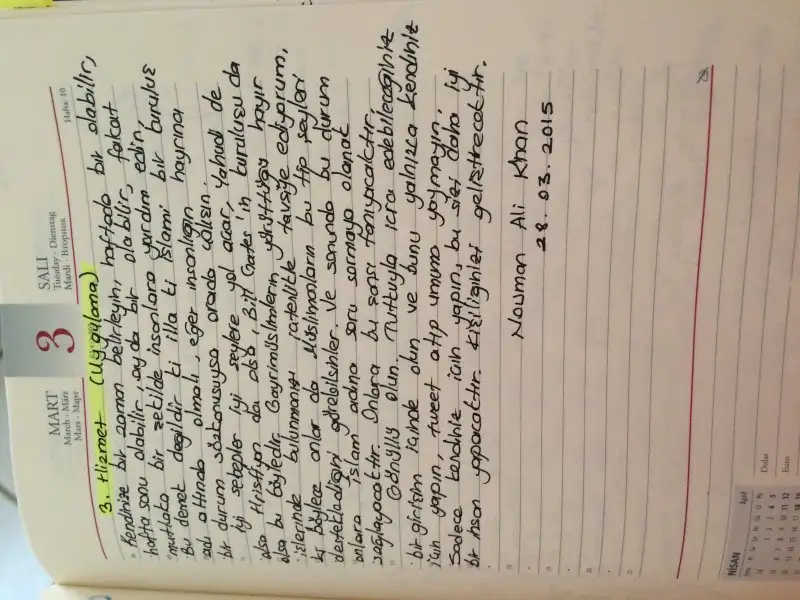 MART
March - März
Mars - Март
3
SALI
Tuesday - Dienstag
Mardi - Вторник
Hafta: 10
3. Hizmet (Uygulama)
Kendinize bir zaman belirleyin, haftada bir olabilir,
hafta sonu olabilir, ayda bir olabilir, fakat
mutlaka bir şekilde insanlara yardım edin,
Bu demek değildir ki illa ki İslami bir kuruluş
adı altında olmalı, eğer insanlığın hayrına
bir durum sözkonusuysa orada çalışın.
İyi sebepler iyi şeylere yol açar, Yahudi de
olsa Hristiyan da olsa, Bill Gates'in kuruluşu da
olsa bu böyledir. Gayrimüslimlerin yürüttüğü hayır
işlerinde bulunmanızı içtenlikle tavsiye ediyorum,
ki böylece onlar da Müslümanların bu tip şeyleri
desteklediğini görebilsinler. Ve sonunda bu durum
onlara islam adına soru sormaya olanak
sağlayacaktır. Onlara bu şansı tanıyacaktır.
Gönüllü olun. Tuttuyla icra edebileceğiniz
bir girişim içinde olun ve bunu yalnızca kendiniz
için yapın, tweet atıp umuma yaymayın,
Sadece kendiniz için yapın, bu sizi daha iyi
bir insan yapacaktır. Kişiliğinizi geliştirecektir.
Nouman Ali Khan
28.03.2015
NİSAN
April
Notlar